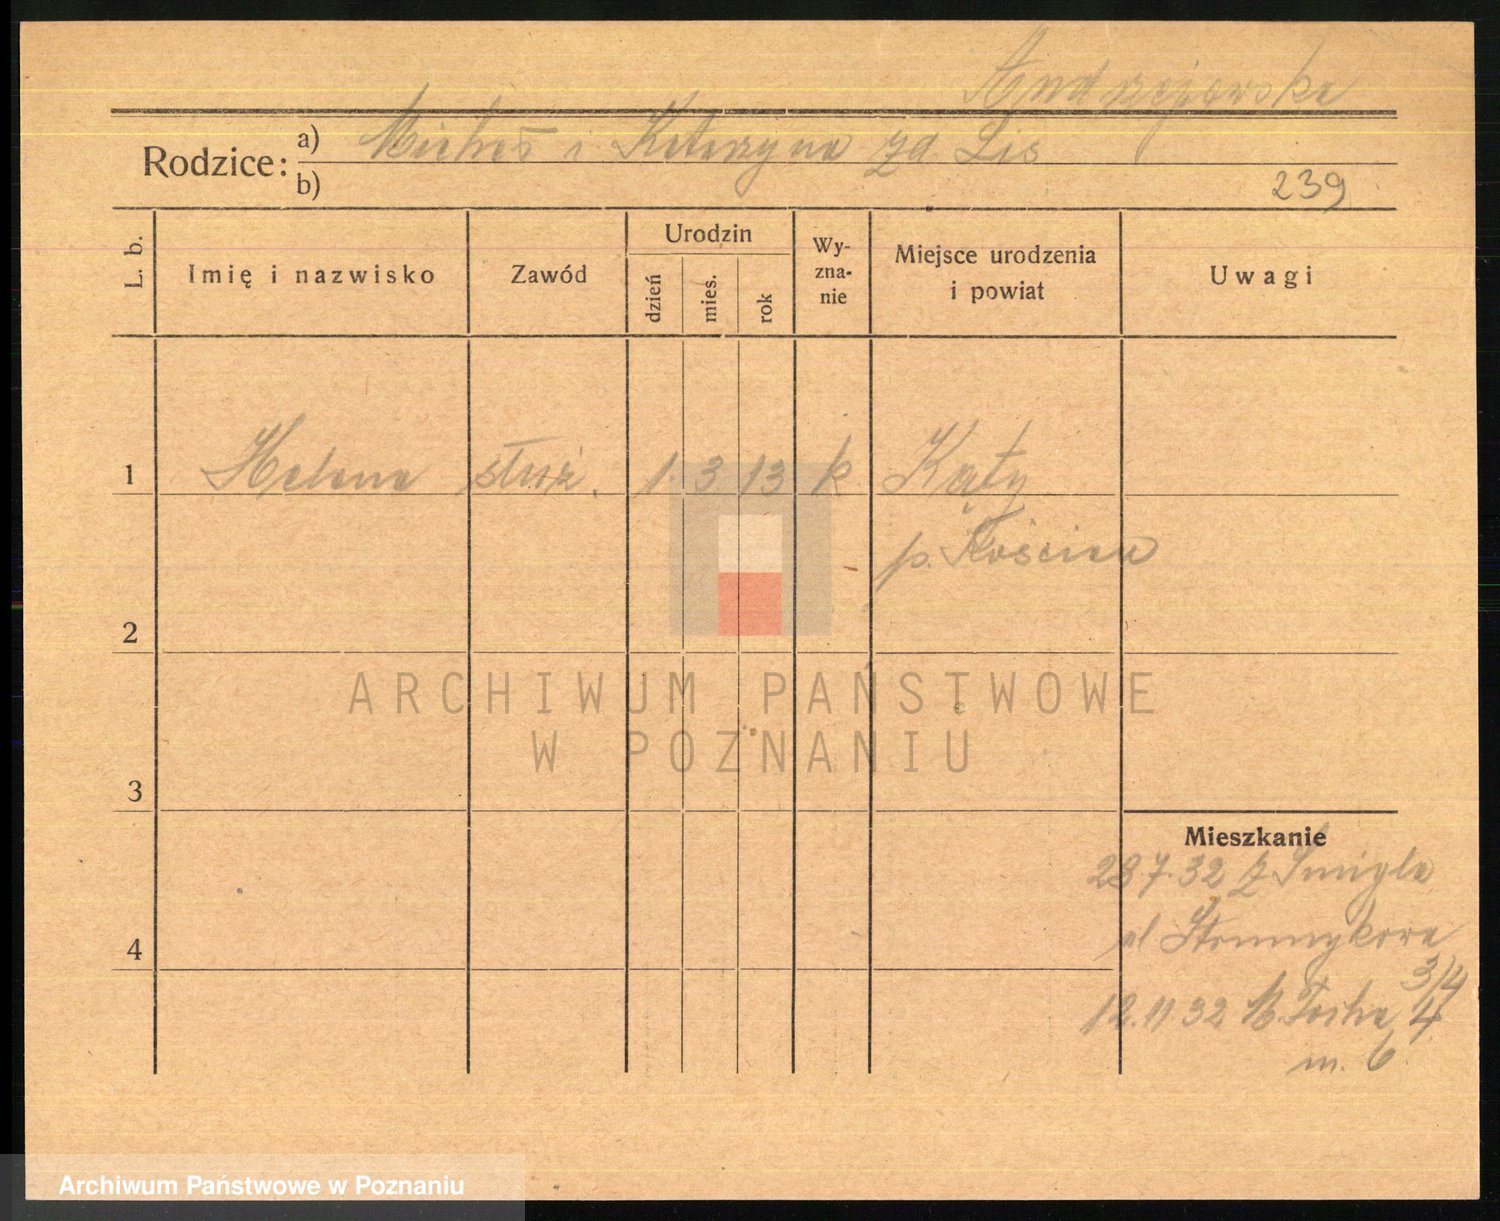 Andrzejewska
Rodzice:
a) Michał i Katarzyna zd. Lis
b)
239
L. b.
Imię i nazwisko
Zawód
Urodzin
dzień
mies.
rok
Wy-
zna-
nie
Miejsce urodzenia
i powiat
Uwagi
1 Helena służ. 1. 3 13 k Kąty
p. Kościan
2
3
4
Mieszkanie
28 7. 32 Z Śmigla
ul
3/4
12.11 32 M. Focha 4
m. 6.
ARCHIWUM PAŃSTWOWE
W POZNANIU
Archiwum Państwowe w Poznaniu